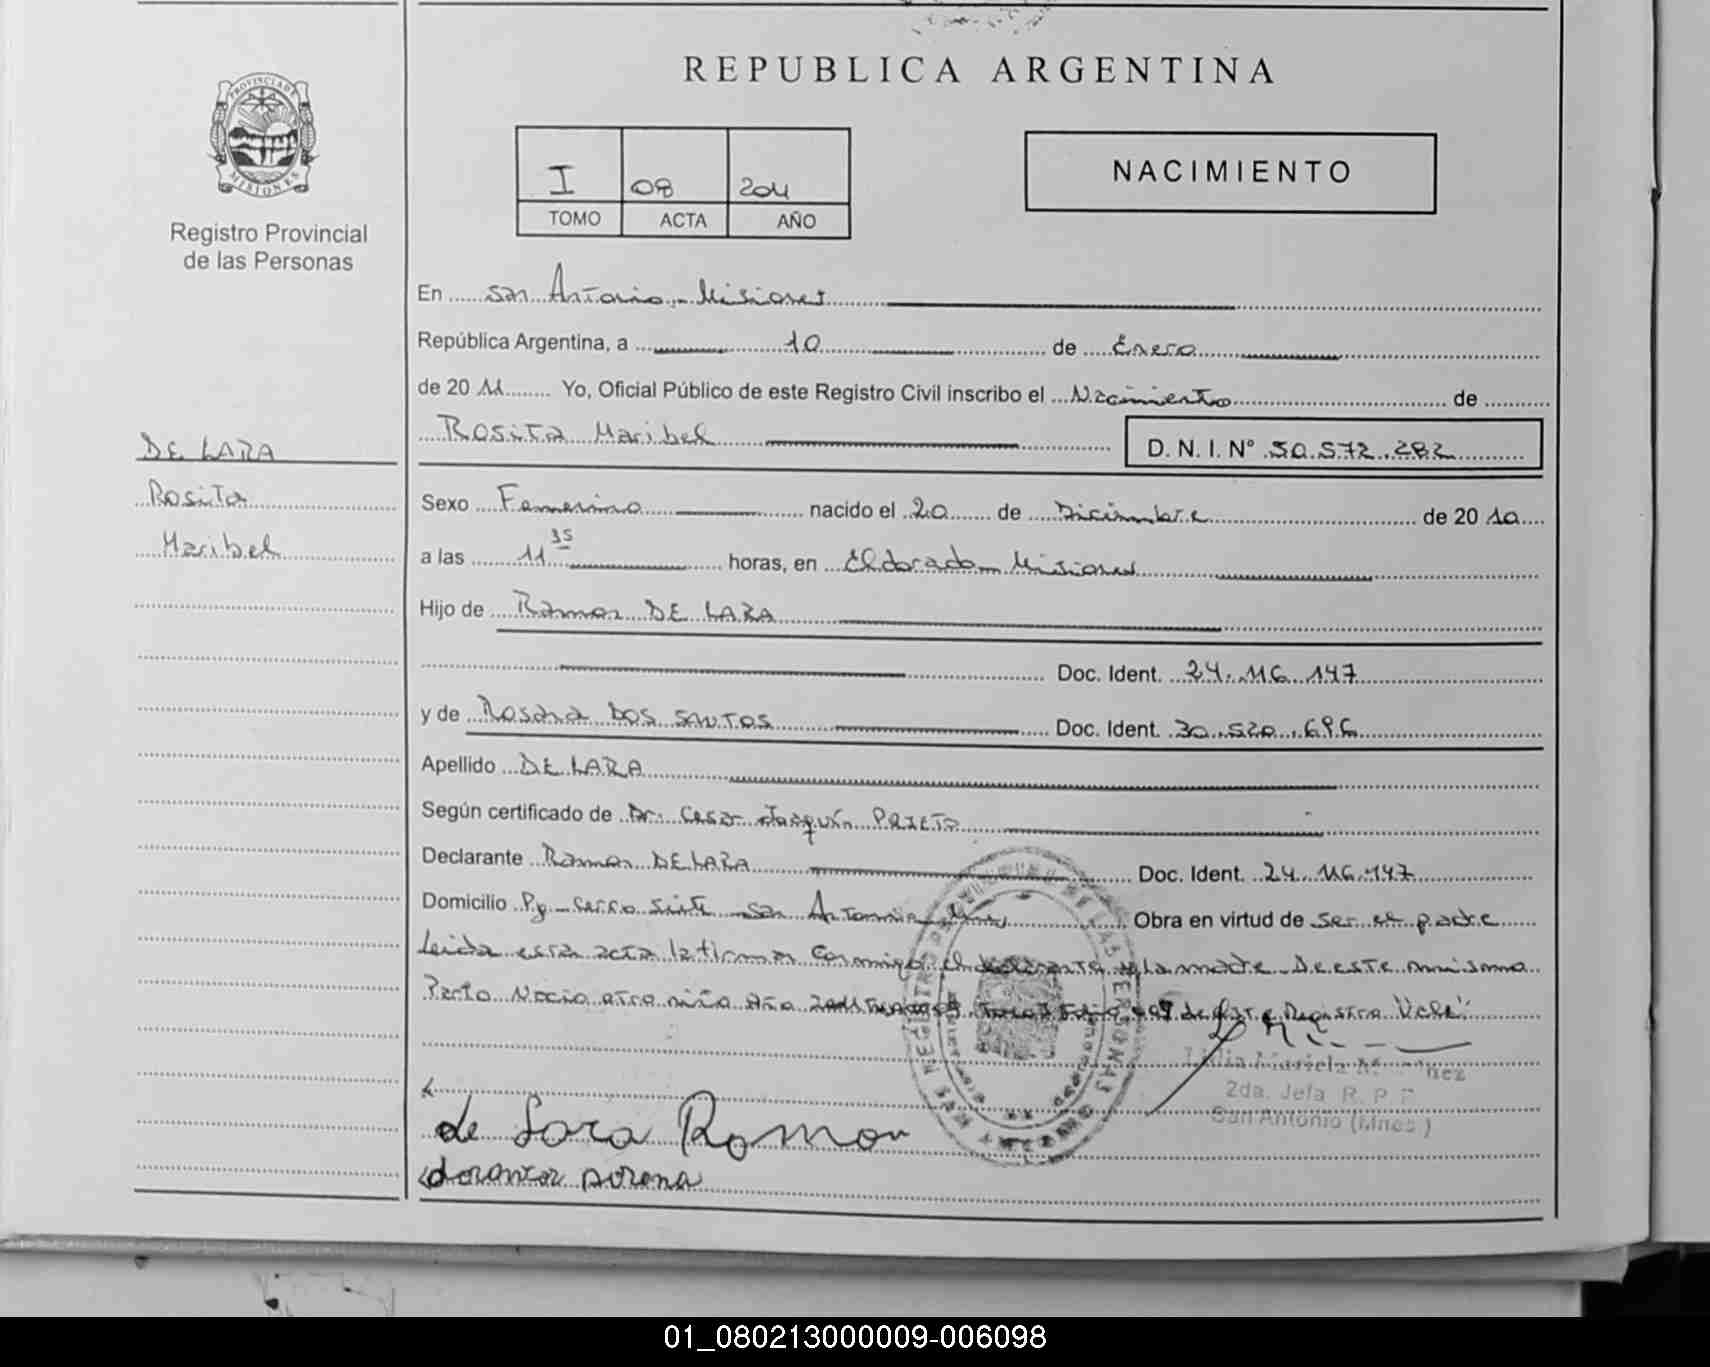 REPUBLICA ARGENTINA
PROVINCIA DE MISIONES
Registro Provincial
de las Personas
I 08 2011
TOMO ACTA AÑO
NACIMIENTO
En San Antonio - Misiones
República Argentina, a 10 de Enero
de 2011 Yo, Oficial Público de este Registro Civil inscribo el Nacimiento de
Rosita Maribel D. N. I. N° 50.572.282
DE LARA
Rosita
Maribel
Sexo Femenino nacido el 20 de Diciembre de 2010
a las 11 35 horas, en Eldorado - Misiones
Hijo de Ramon DE LARA
Doc. Ident. 24.116.147
y de Rosana DOS SANTOS Doc. Ident. 30.520.696
Apellido DE LARA
Según certificado de Dr. Cesar Joaquín PRIETO
Declarante Ramon DE LARA Doc. Ident. 24.116.147
Domicilio Pje - Cerro Siete - San Antonio Mnes Obra en virtud de ser el padre
Leida esta acta la firman conmigo el declarante y la madre. De este mismo
Parto Nacio otra niña Año 2011 Tomo I de este Registro "Vale"
2da. Jefa R. P. P.
San Antonio (Mnes)
de Lara Ramon
01_080213000009-006098